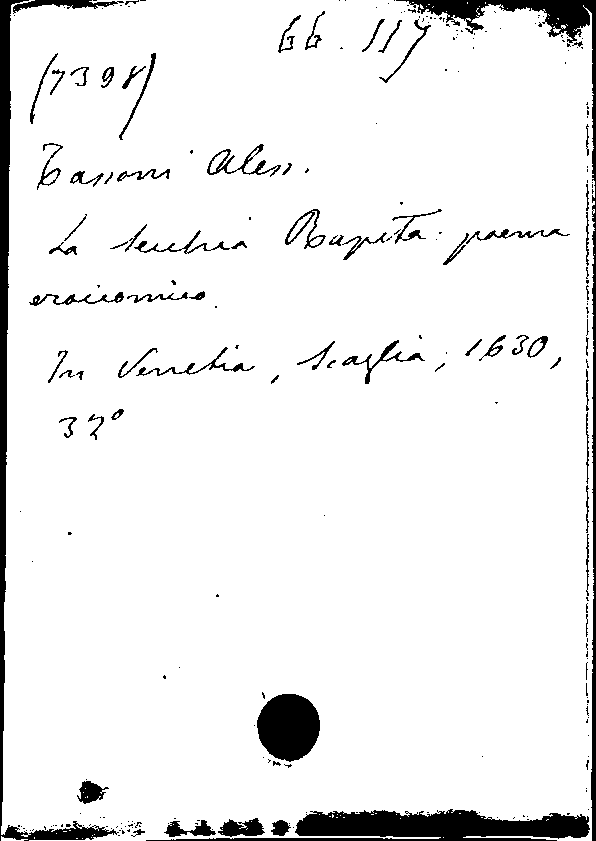 66. 117
(7398)
Tassoni Aless.
La Secchia Rapita: poema
eroicomico.
In Venetia, Scaglia, 1630,
32°